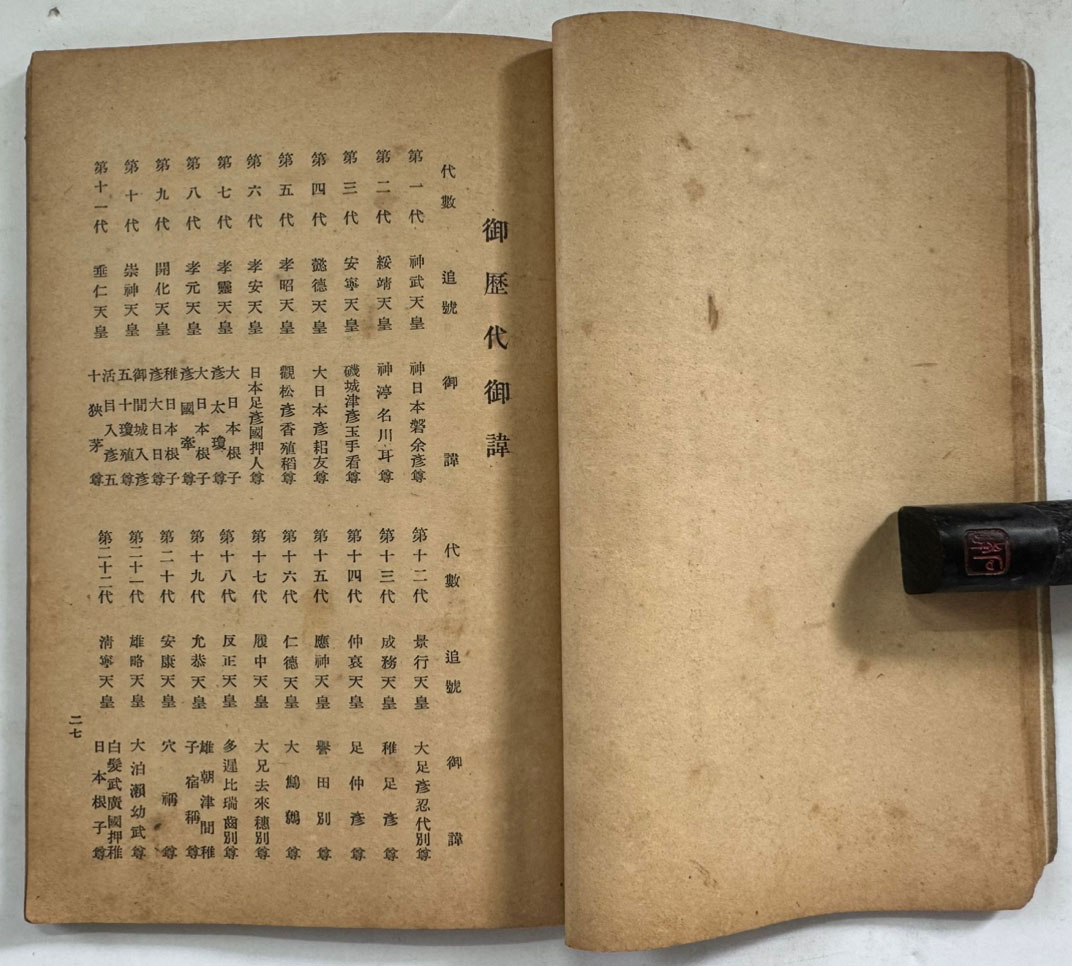 御歷代御諱
代數 追號 御諱
第一代 神武天皇 神日本磐余彥尊
第二代 綏靖天皇 神渟名川耳尊
第三代 安寧天皇 磯城津彥玉手看尊
第四代 懿德天皇 大日本彥耜友尊
第五代 孝昭天皇 觀松彥香殖稻尊
第六代 孝安天皇 日本足彥國押人尊
第七代 孝靈天皇 大日本根子
彥太瓊尊
第八代 孝元天皇 大日本根子
彥國牽尊
第九代 開化天皇 稚日本根子
彥大日日尊
第十代 崇神天皇 御間城入彥
五十瓊殖尊
第十一代 垂仁天皇 活目入彥五
十狹茅尊
代數 追號 御諱
第十二代 景行天皇 大足彥忍代別尊
第十三代 成務天皇 稚足彥尊
第十四代 仲哀天皇 足仲彥尊
第十五代 應神天皇 譽田別尊
第十六代 仁德天皇 大鷦鷯尊
第十七代 履中天皇 大兄去來穗別尊
第十八代 反正天皇 多遲比瑞齒別尊
第十九代 允恭天皇 雄朝津間稚
子宿稱尊
第二十代 安康天皇 穴稱尊
第二十一代 雄略天皇 大泊瀨幼武尊
第二十二代 淸寧天皇 白髮武廣國押稚
日本根子尊
二七